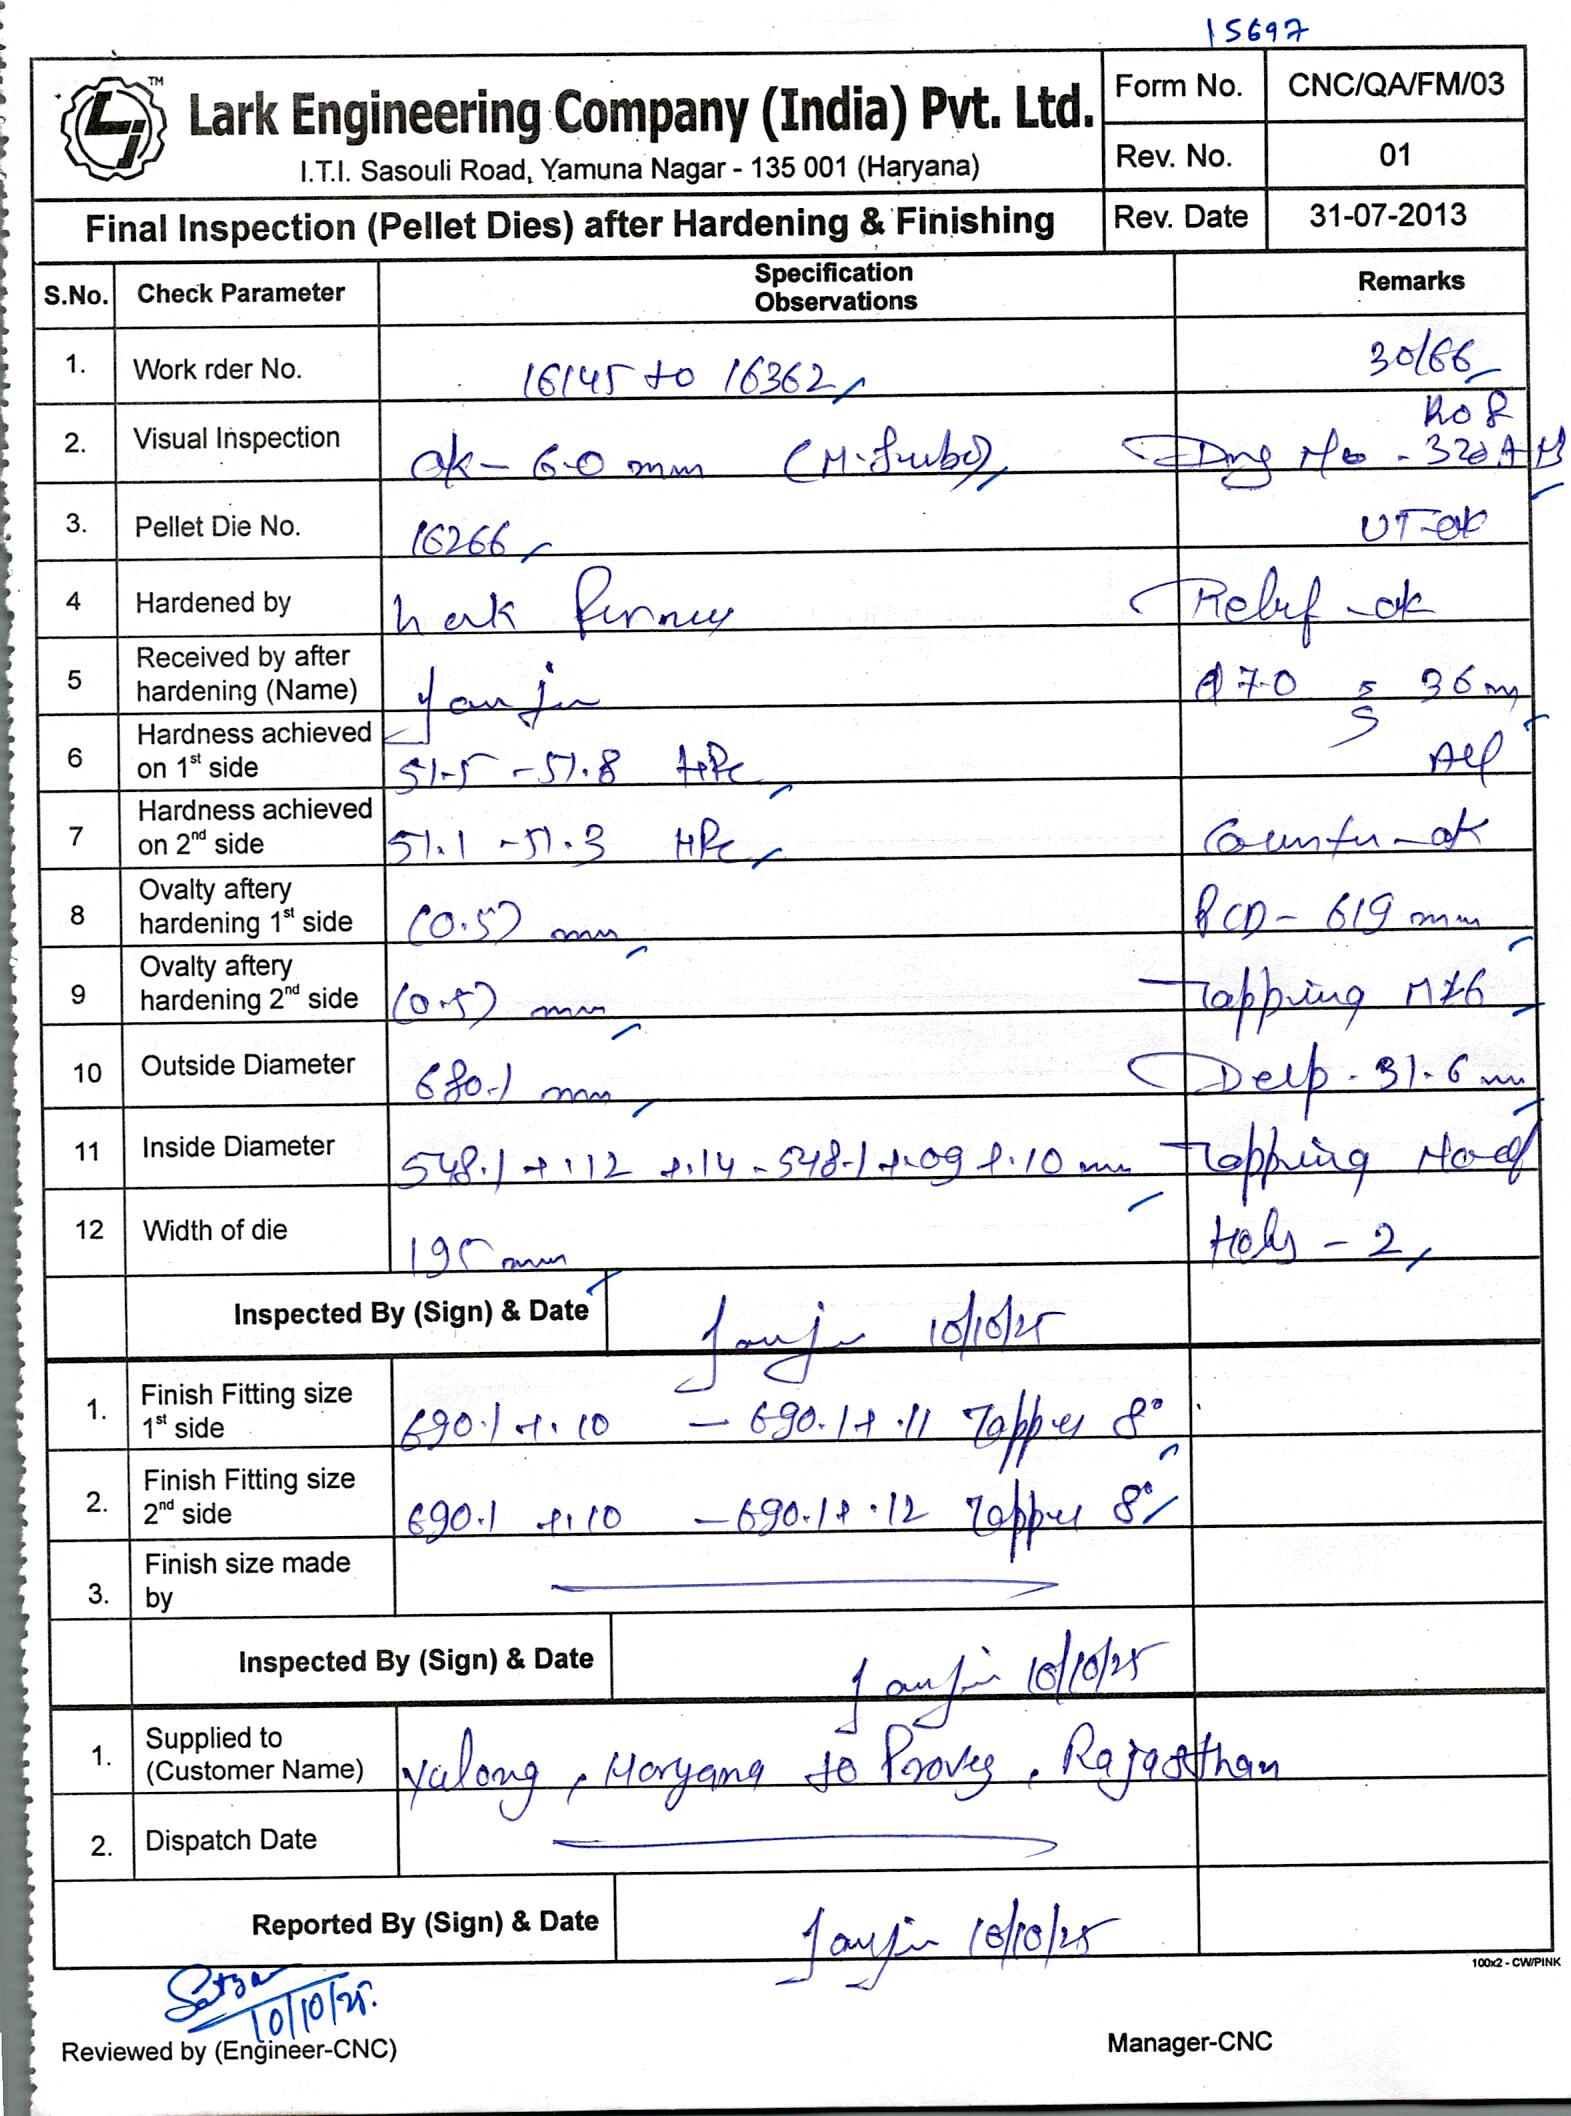 15697
TM
Lark Engineering Company (India) Pvt. Ltd.
I.T.I. Sasouli Road, Yamuna Nagar - 135 001 (Haryana)
Form No. CNC/QA/FM/03
Rev. No. 01
Final Inspection (Pellet Dies) after Hardening & Finishing
Rev. Date 31-07-2013
S.No. Check Parameter Specification Observations Remarks
1. Work rder No. 16145 to 16362 30/66
2. Visual Inspection ok - 6.0 mm Drg No - 320
3. Pellet Die No. 16266 UT-ok
4 Hardened by Lark Relief - ok
5 Received by after hardening (Name) 36 m
6 Hardness achieved on 1st side 51.5 - 51.8 HRc
7 Hardness achieved on 2nd side 51.1 - 51.3 HRc Counter - ok
8 Ovalty aftery hardening 1st side (0.5) mm PCD - 619 mm
9 Ovalty aftery hardening 2nd side (0.5) mm Tapping
10 Outside Diameter 680.1 mm 31.6 mm
11 Inside Diameter 548.1 +.12 +.14 - 548.1 +.09 +.10 mm Tapping
12 Width of die 195 mm Holes - 2
Inspected By (Sign) & Date 10/10/25
1. Finish Fitting size 1st side 690.1 +.10 - 690.1 + .11 Tapper 8°
2. Finish Fitting size 2nd side 690.1 +.10 - 690.1 + .12 Tapper 8°
3. Finish size made by
Inspected By (Sign) & Date 10/10/25
1. Supplied to (Customer Name) Yulong, Haryana to Rajasthan
2. Dispatch Date
Reported By (Sign) & Date 10/10/25
100x2 - CW/PINK
10/10/25.
Reviewed by (Engineer-CNC)
Manager-CNC